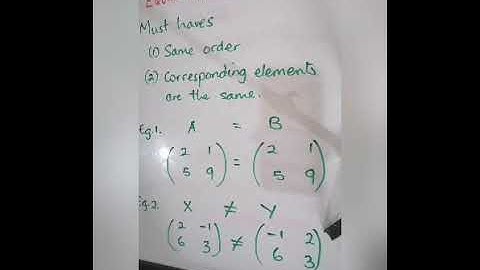 Must haves
(1) Same order
(2) Corresponding elements
are the same.
Eg.1. A = B
( 2 1 ) = ( 2 1 )
( 5 9 ) ( 5 9 )
Eg.2. X ≠ Y
( 2 -1 ) ≠ ( -1 2 )
( 6 3 ) ( 6 3 )